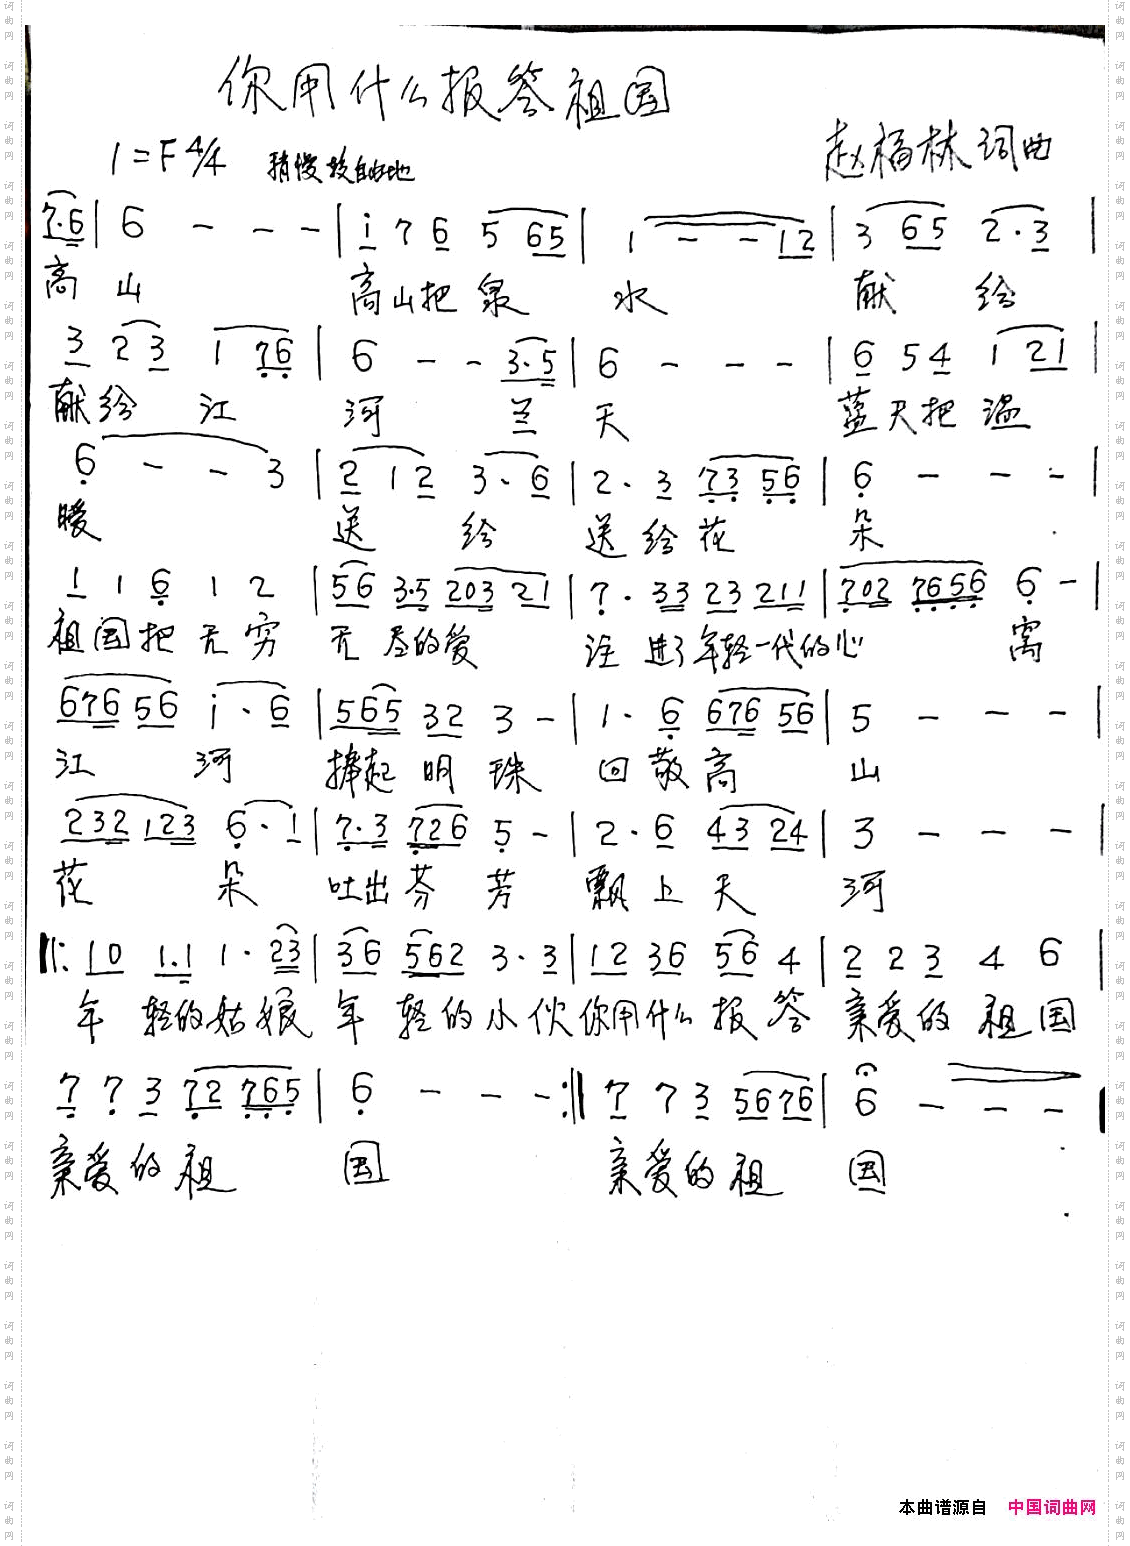 你用什么报答祖国
1=F 4/4 稍慢较自由地
赵福林词曲
7·6 | 6 - - - | i 7 6 5 65 | 1 - - 12 | 3 65 2·3 |
高 山 高山把泉 水 献 给
3 2 3 1 76 | 6 - - 3·5 | 6 - - - | 6 5 4 1 21 |
献给 江 河 兰 天 蓝天把温
6 - - 3 | 2 1 2 3·6 | 2·3 73 56 | 6 - - - |
暖 送 给 送给花 朵
1 1 6 1 2 | 56 3·5 203 21 | 7·33 23 211 | 702 7656 6 - |
祖国把无穷 无尽的爱 注进了年轻一代的心 窝
676 56 i·6 | 565 32 3 - | 1·6 676 56 | 5 - - - |
江 河 捧起明珠 回敬高 山
232 123 6·1 | 7·3 726 5 - | 2·6 43 24 | 3 - - - |
花 朵 吐出芬芳 飘上天 河
‖: 10 1·1 1·23 | 36 562 3·3 | 12 36 56 4 | 2 2 3 4 6 |
年 轻的姑娘 年 轻的小伙 你用什么报答 亲爱的祖国
7 7 3 72 765 | 6 - - - :‖ 7 7 3 56 76 | 6 - - - ‖
亲爱的祖 国 亲爱的祖 国
本曲谱源自 中国词曲网